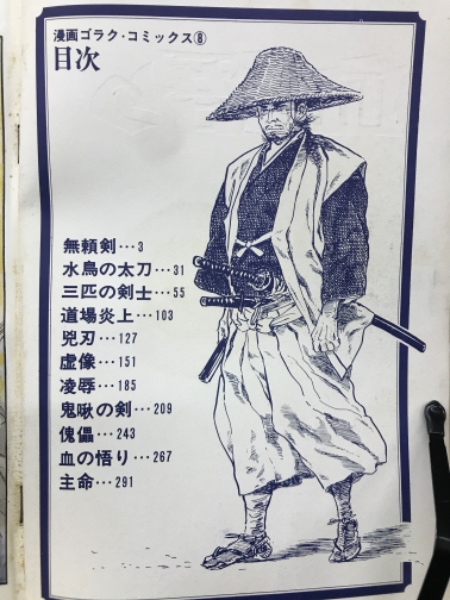 漫画ゴラク・コミックス⑧
目次
無頼剣…3
水鳥の太刀…31
三匹の剣士…55
道場炎上…103
兇刃…127
虚像…151
凌辱…185
鬼啾の剣…209
傀儡…243
血の悟り…267
主命…291